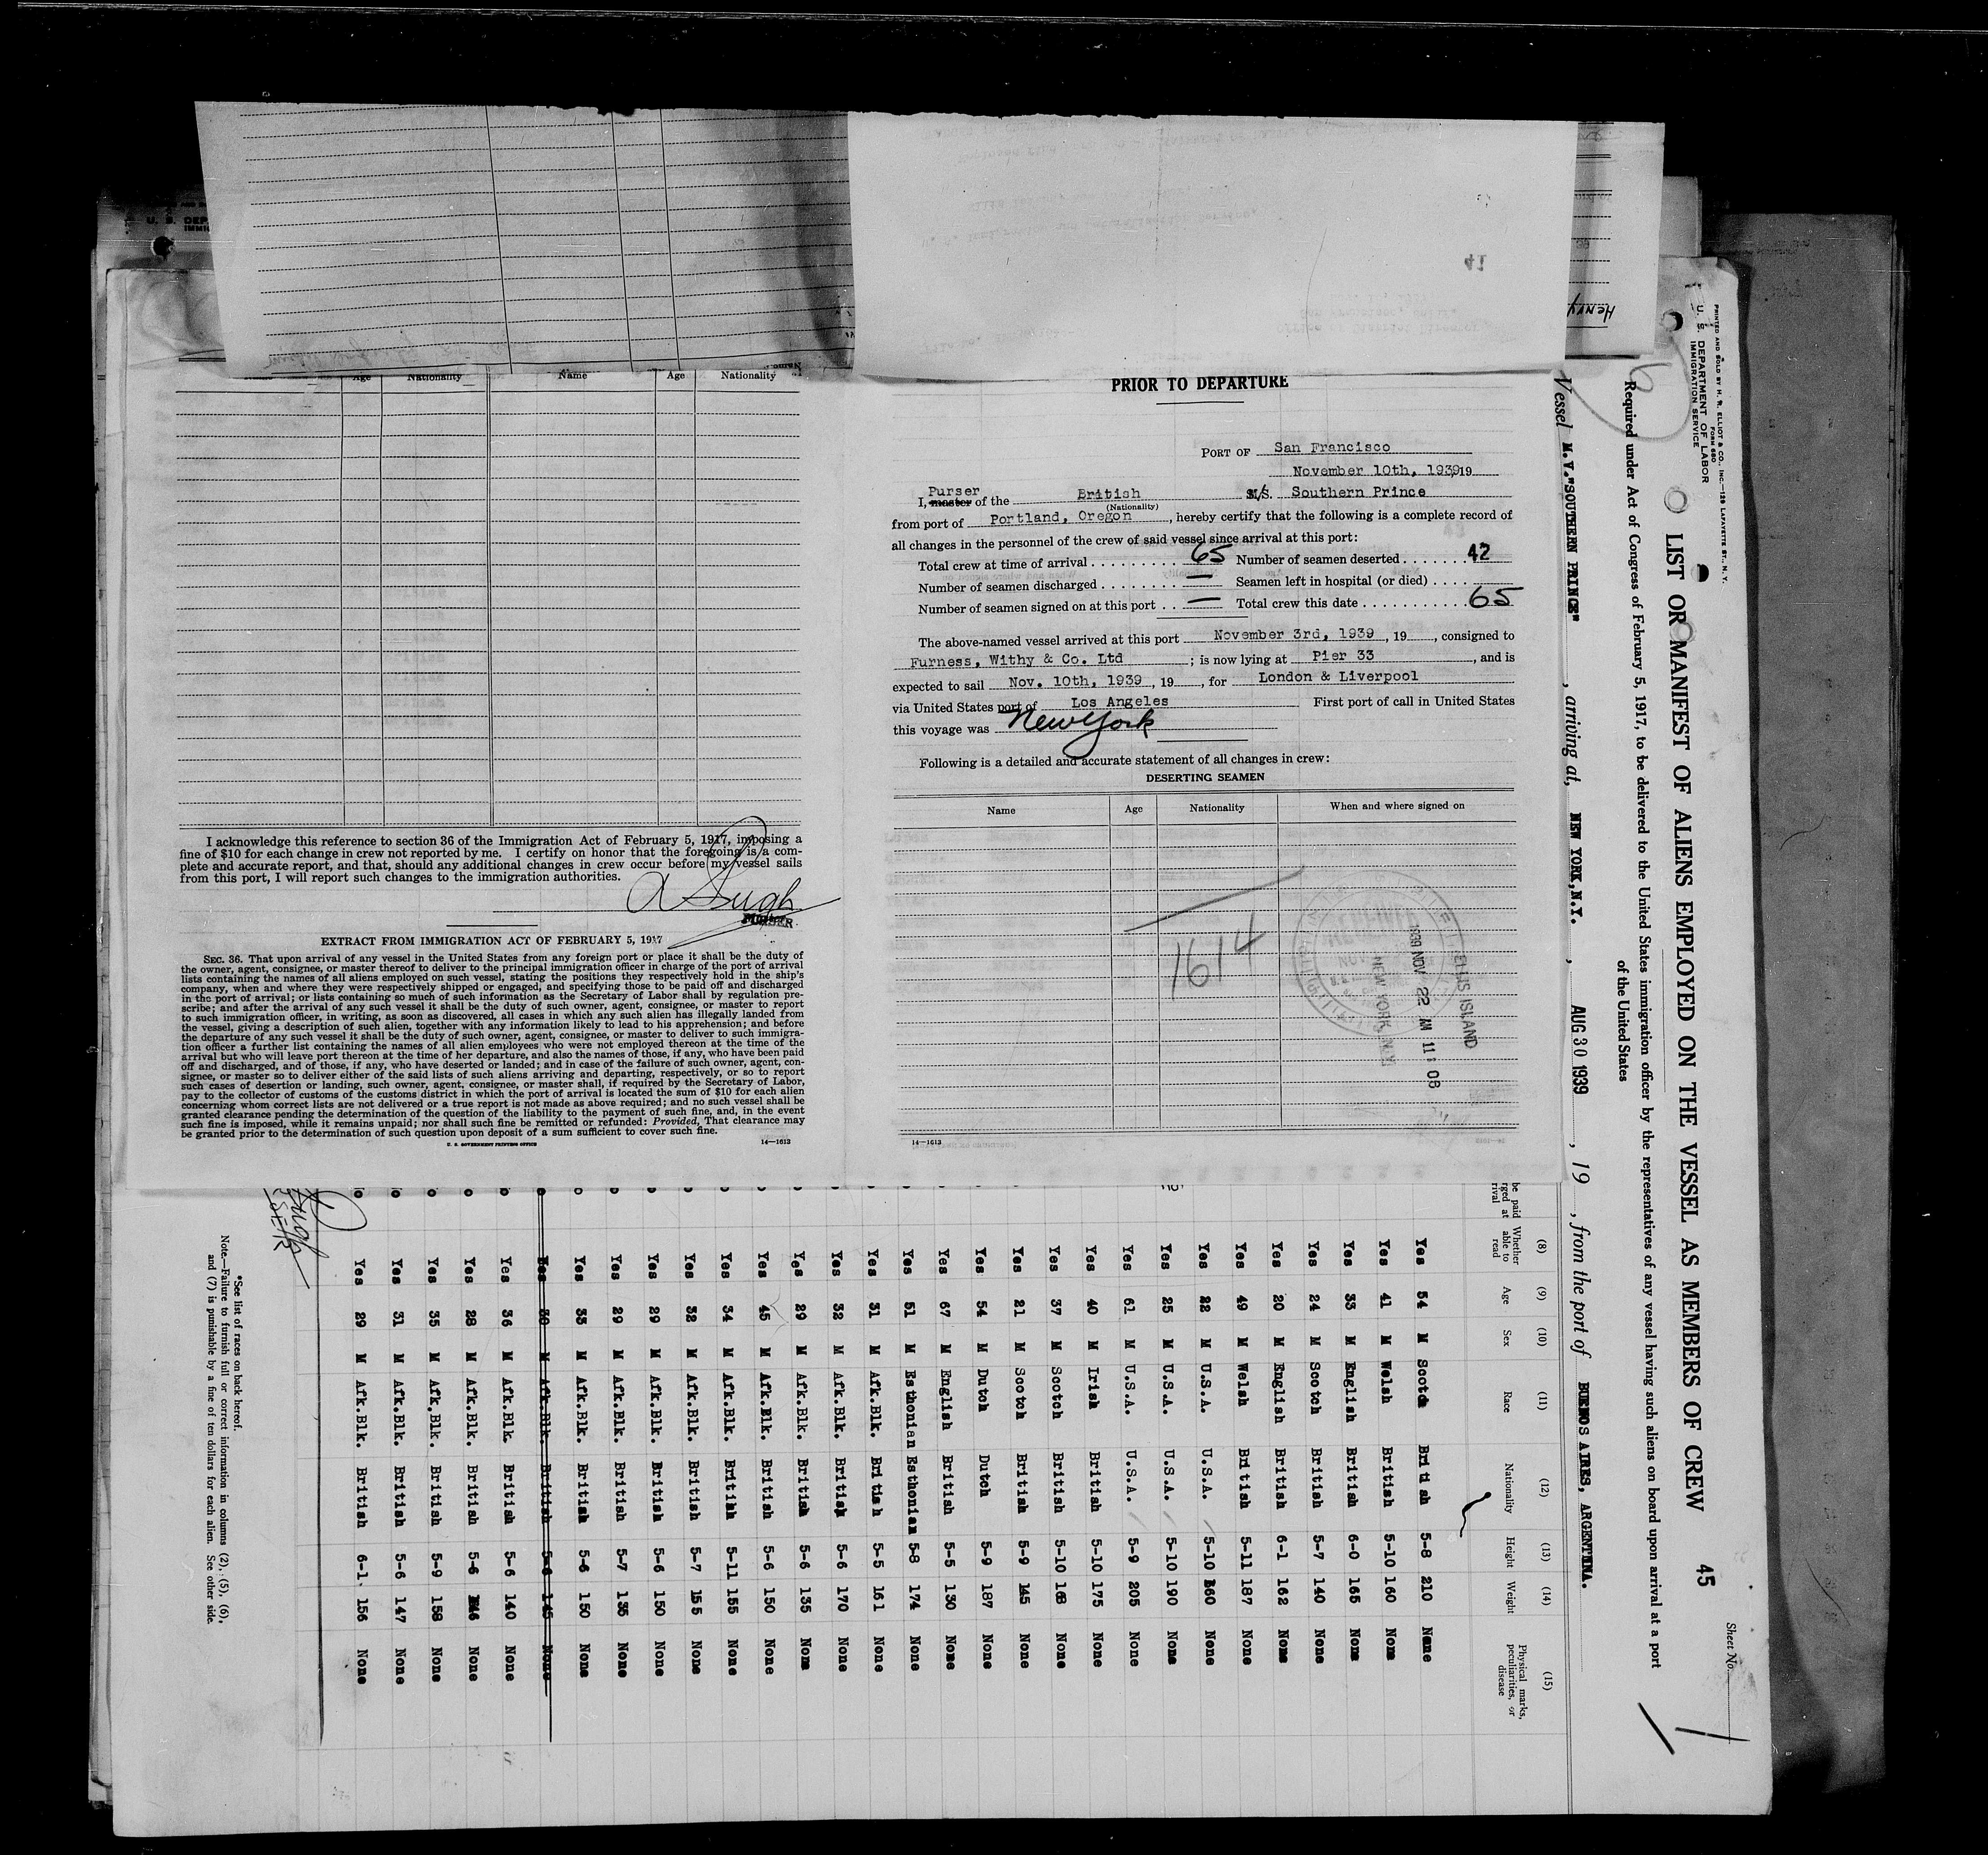 U. S. DEP
IMMIG
41
HENRY
Age Nationality Name Age Nationality
I acknowledge this reference to section 36 of the Immigration Act of February 5, 1917, imposing a
fine of $10 for each change in crew not reported by me. I certify on honor that the foregoing is a com-
plete and accurate report, and that, should any additional changes in crew occur before my vessel sails
from this port, I will report such changes to the immigration authorities.
EXTRACT FROM IMMIGRATION ACT OF FEBRUARY 5, 1917
SEC. 36. That upon arrival of any vessel in the United States from any foreign port or place it shall be the duty of
the owner, agent, consignee, or master thereof to deliver to the principal immigration officer in charge of the port of arrival
lists containing the names of all aliens employed on such vessel, stating the positions they respectively hold in the ship's
company, when and where they were respectively shipped or engaged, and specifying those to be paid off and discharged
in the port of arrival; or lists containing so much of such information as the Secretary of Labor shall by regulation pre-
scribe; and after the arrival of any such vessel it shall be the duty of such owner, agent, consignee, or master to report
to such immigration officer, in writing, as soon as discovered, all cases in which any such alien has illegally landed from
the vessel, giving a description of such alien, together with any information likely to lead to his apprehension; and before
the departure of any such vessel it shall be the duty of such owner, agent, consignee, or master to deliver to such immigra-
tion officer a further list containing the names of all alien employees who were not employed thereon at the time of the
arrival but who will leave port thereon at the time of her departure, and also the names of those, if any, who have been paid
off and discharged, and of those, if any, who have deserted or landed; and in case of the failure of such owner, agent, con-
signee, or master so to deliver either of the said lists of such aliens arriving and departing, respectively, or so to report
such cases of desertion or landing, such owner, agent, consignee, or master shall, if required by the Secretary of Labor,
pay to the collector of customs of the customs district in which the port of arrival is located the sum of $10 for each alien
concerning whom correct lists are not delivered or a true report is not made as above required; and no such vessel shall be
granted clearance pending the determination of the question of the liability to the payment of such fine, and, in the event
such fine is imposed, while it remains unpaid; nor shall such fine be remitted or refunded: Provided, That clearance may
be granted prior to the determination of such question upon deposit of a sum sufficient to cover such fine.
U. S. GOVERNMENT PRINTING OFFICE 14—1613
PRIOR TO DEPARTURE
PORT OF San Francisco
November 10th, 1939, 19
Purser
I, master of the British M/S. Southern Prince
(Nationality)
from port of Portland, Oregon, hereby certify that the following is a complete record of
all changes in the personnel of the crew of said vessel since arrival at this port:
Total crew at time of arrival 65 Number of seamen deserted 42
Number of seamen discharged — Seamen left in hospital (or died)
Number of seamen signed on at this port — Total crew this date 65
The above-named vessel arrived at this port November 3rd, 1939, 19, consigned to
Furness, Withy & Co. Ltd; is now lying at Pier 33, and is
expected to sail Nov. 10th, 1939, 19, for London & Liverpool
via United States port of Los Angeles First port of call in United States
this voyage was New York
Following is a detailed and accurate statement of all changes in crew:
DESERTING SEAMEN
Name Age Nationality When and where signed on
1614
ELLIS ISLAND
1939 NOV 22 AM 11:08
NEW YORK, N.Y.
14—1613
PRINTED AND SOLD BY H. R. ELLIOT & CO., INC.—129 LAFAYETTE ST., N. Y.
FORM 680
U. S. DEPARTMENT OF LABOR
IMMIGRATION SERVICE
Sheet No.
LIST OR MANIFEST OF ALIENS EMPLOYED ON THE VESSEL AS MEMBERS OF CREW 45
Required under Act of Congress of February 5, 1917, to be delivered to the United States immigration officer by the representatives of any vessel having such aliens on board upon arrival at a port
of the United States
Vessel M.V."SOUTHERN PRINCE", arriving at, NEW YORK,N.Y., AUG 30 1939, 19, from the port of BUENOS AIRES, ARGENTINA.
(8) (9) (10) (11) (12) (13) (14) (15)
Whether able to read Age Sex Race Nationality Height Weight Physical marks, peculiarities, or disease
Yes 54 M Scotch British 5-8 210 None
Yes 41 M Welsh British 5-10 160 None
Yes 33 M English British 6-0 165 None
Yes 24 M Scotch British 5-7 140 None
Yes 20 M English British 6-1 162 None
Yes 49 M Welsh British 5-11 187 None
Yes 22 M U.S.A. U.S.A. 5-10 160 None
Yes 25 M U.S.A. U.S.A. 5-10 190 None
Yes 61 M U.S.A. U.S.A. 5-9 205 None
Yes 40 M Irish British 5-10 175 None
Yes 37 M Scotch British 5-10 168 None
Yes 21 M Scotch British 5-9 145 None
Yes 54 M Dutch Dutch 5-9 187 None
Yes 67 M English British 5-5 130 None
Yes 51 M Esthonian Esthonian 5-8 174 None
Yes 31 M Afk.Blk. British 5-5 161 None
Yes 32 M Afk.Blk. British 5-6 170 None
Yes 29 M Afk.Blk. British 5-6 135 None
Yes 45 M Afk.Blk. British 5-6 150 None
Yes 34 M Afk.Blk. British 5-11 155 None
Yes 32 M Afk.Blk. British 5-7 155 None
Yes 29 M Afk.Blk. British 5-6 150 None
Yes 29 M Afk.Blk. British 5-7 135 None
Yes 35 M Afk.Blk. British 5-6 150 None
Yes 30 M Afk.Blk. British 5-6 145 None
Yes 36 M Afk.Blk. British 5-6 140 None
Yes 28 M Afk.Blk. British 5-6 146 None
Yes 35 M Afk.Blk. British 5-9 158 None
Yes 31 M Afk.Blk. British 5-6 147 None
Yes 29 M Afk.Blk. British 6-1 156 None
*See list of races on back hereof.
Note.—Failure to furnish full or correct information in columns (2), (5), (6),
and (7) is punishable by a fine of ten dollars for each alien. See other side.